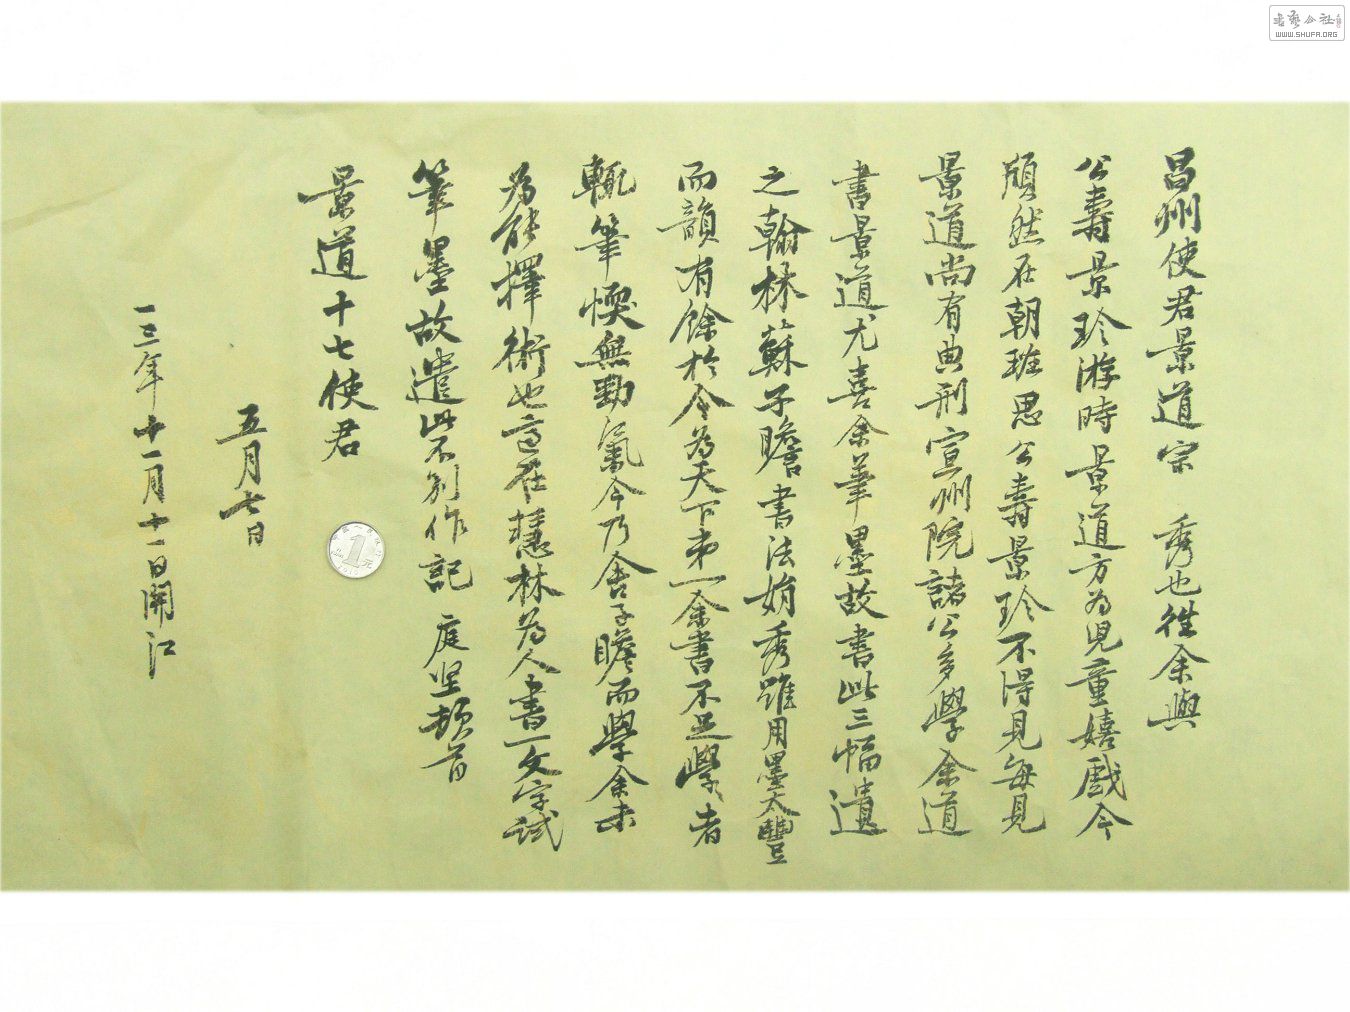 昌州使君景道宗 秀也往余與
公壽景珍游時景道方為児童嬉戲今
頎然在朝班思公壽景珍不得見每見
景道尚有典刑宣州院諸公多學余道
書景道尤喜余筆墨故書此三幅遺
之翰林蘇子瞻書法娟秀雖用墨太豐
而韻有餘於今為天下第一余書不足學學者
輒筆愞無勁氣今乃舍子瞻而學余未
為能擇術也適在慧林為人書一文字試
筆墨故遣此不別作記 庭坚頓首
景道十七使君
五月七日
一三年十一月十一日開江
書藝公社
WWW.SHUFA.ORG
1
元